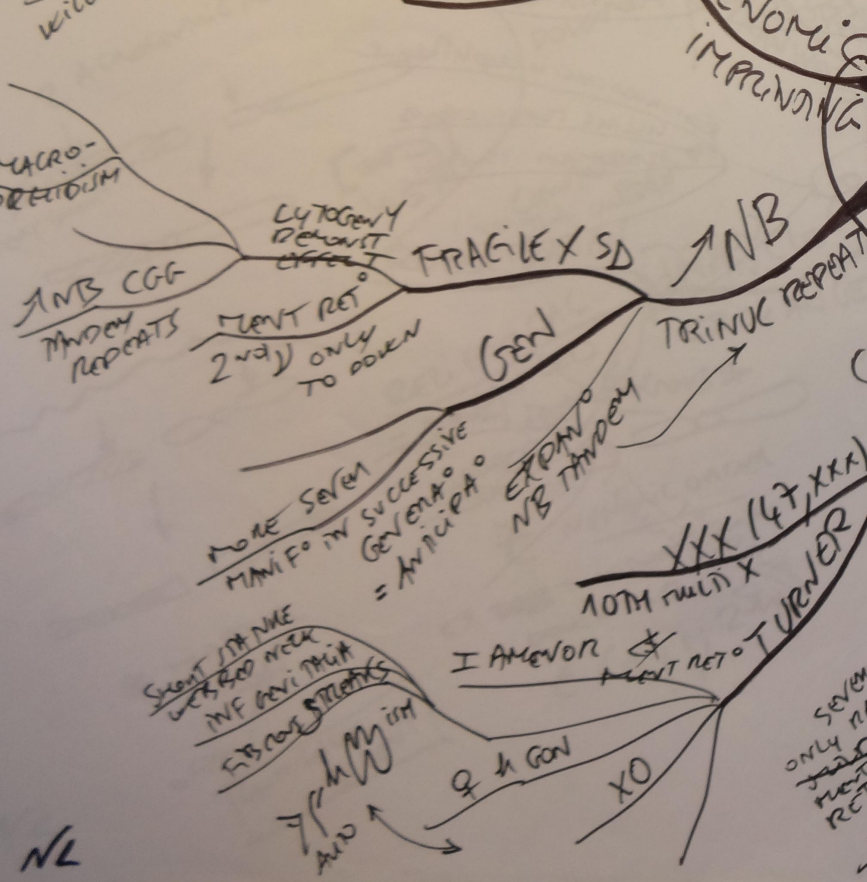 IMPRINTING
MACRO-
ORCHIDISM
↗NB CGG
TANDEM
REPEATS
CYTOGENY
DEMONST
EFFECT
MENT RET°
2ND ONLY
TO DOWN
FRAGILE X SD
↗NB
TRINUC REPEAT
GEN
EXPAN°
NB TANDEM
MORE SEVER
MANIF° IN SUCCESSIVE
GENERA°
= ANTICIPA°
XXX (47, XXX)
10TH MULTI X
TURNER
I AMENOR
MENT RET°
SHORT STATURE
WEBBED NECK
INF GENITALIA
FIBROUS STREAKS
♀ h GON
XO
ISM
AUTO
SEVER
ONLY
MENT
RET
NL